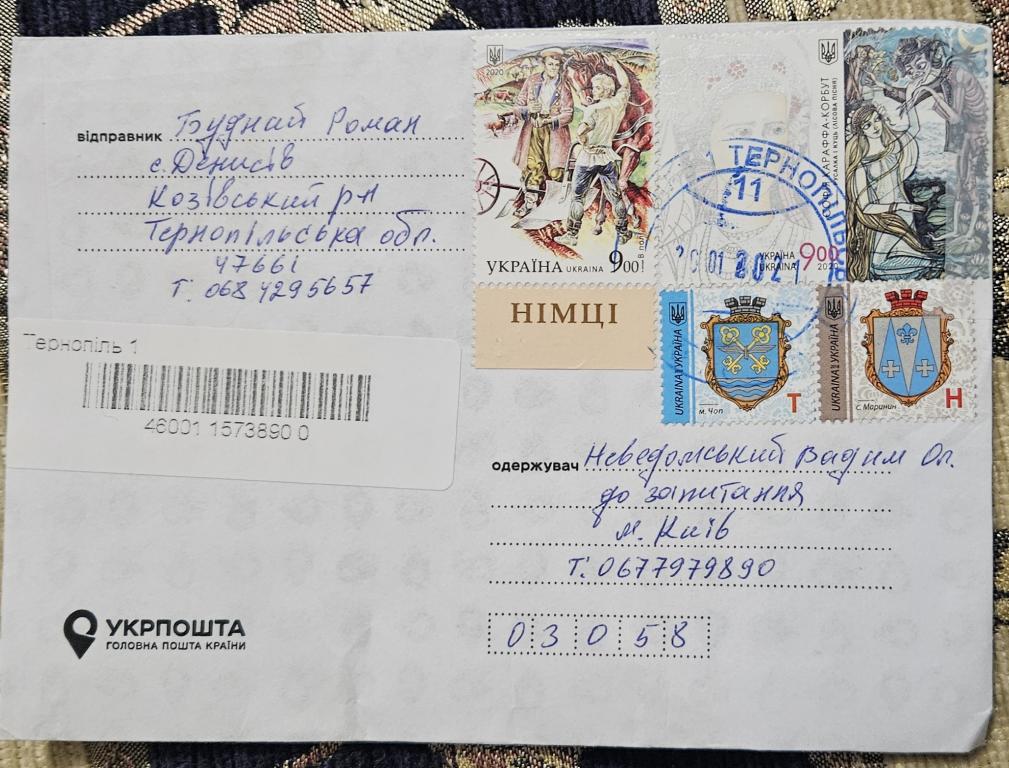 відправник Будний Роман
с. Денисів
Козівський р-н
Тернопільська обл.
47661
Т. 068 4295657
2020
УКРАЇНА UKRAINE 9.00
В полі
НІМЦІ
КАРАФФА-КОРБУТ
УКРАЇНА 9.00
UKRAINE 2020
ТЕРНОПІЛЬ
11
01 2021
UKRAINE УКРАЇНА
м. Чоп
Т
UKRAINE УКРАЇНА
с. Маринин
Н
Тернопіль 1
46001 1573890 0
одержувач Неведомський Вадим Ол.
до запитання
м. Київ
Т. 0677979890
03058
УКРПОШТА
ГОЛОВНА ПОШТА КРАЇНИ